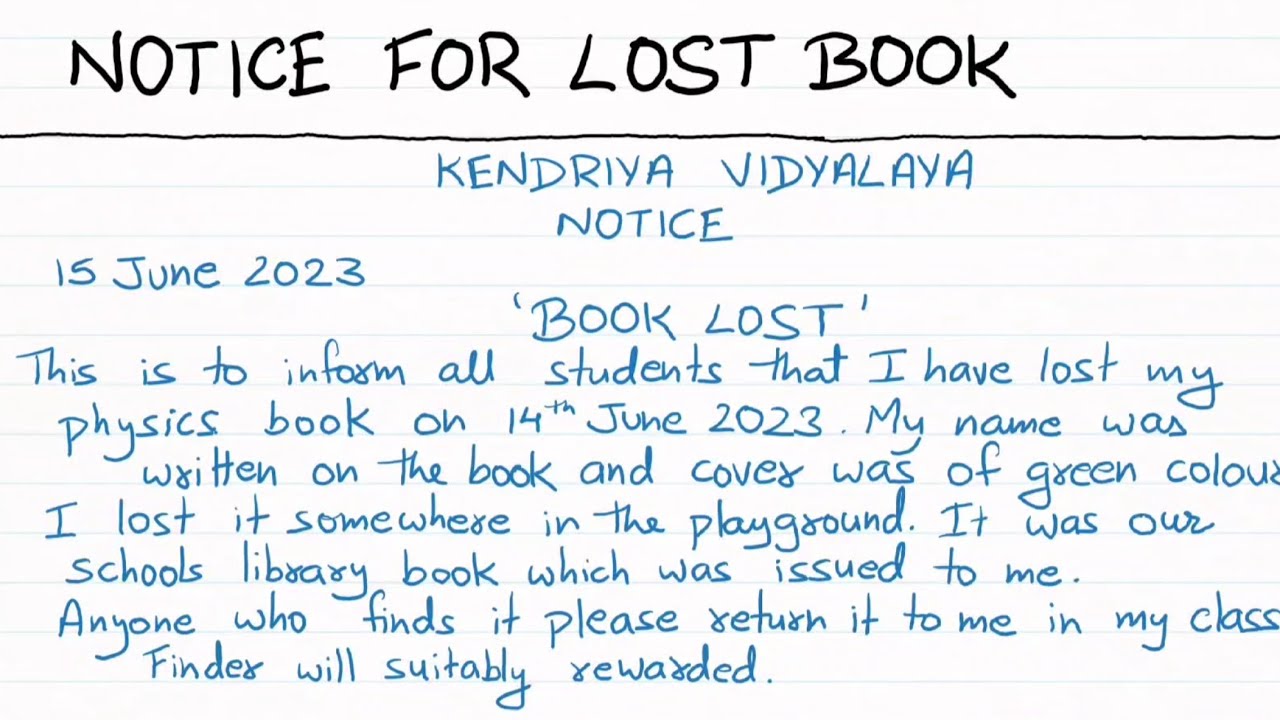 NOTICE FOR LOST BOOK
KENDRIYA VIDYALAYA
NOTICE
15 June 2023
'BOOK LOST'
This is to inform all students that I have lost my
physics book on 14th June 2023. My name was
written on the book and cover was of green colour
I lost it somewhere in the playground. It was our
schools library book which was issued to me.
Anyone who finds it please return it to me in my class
Finder will suitably rewarded.